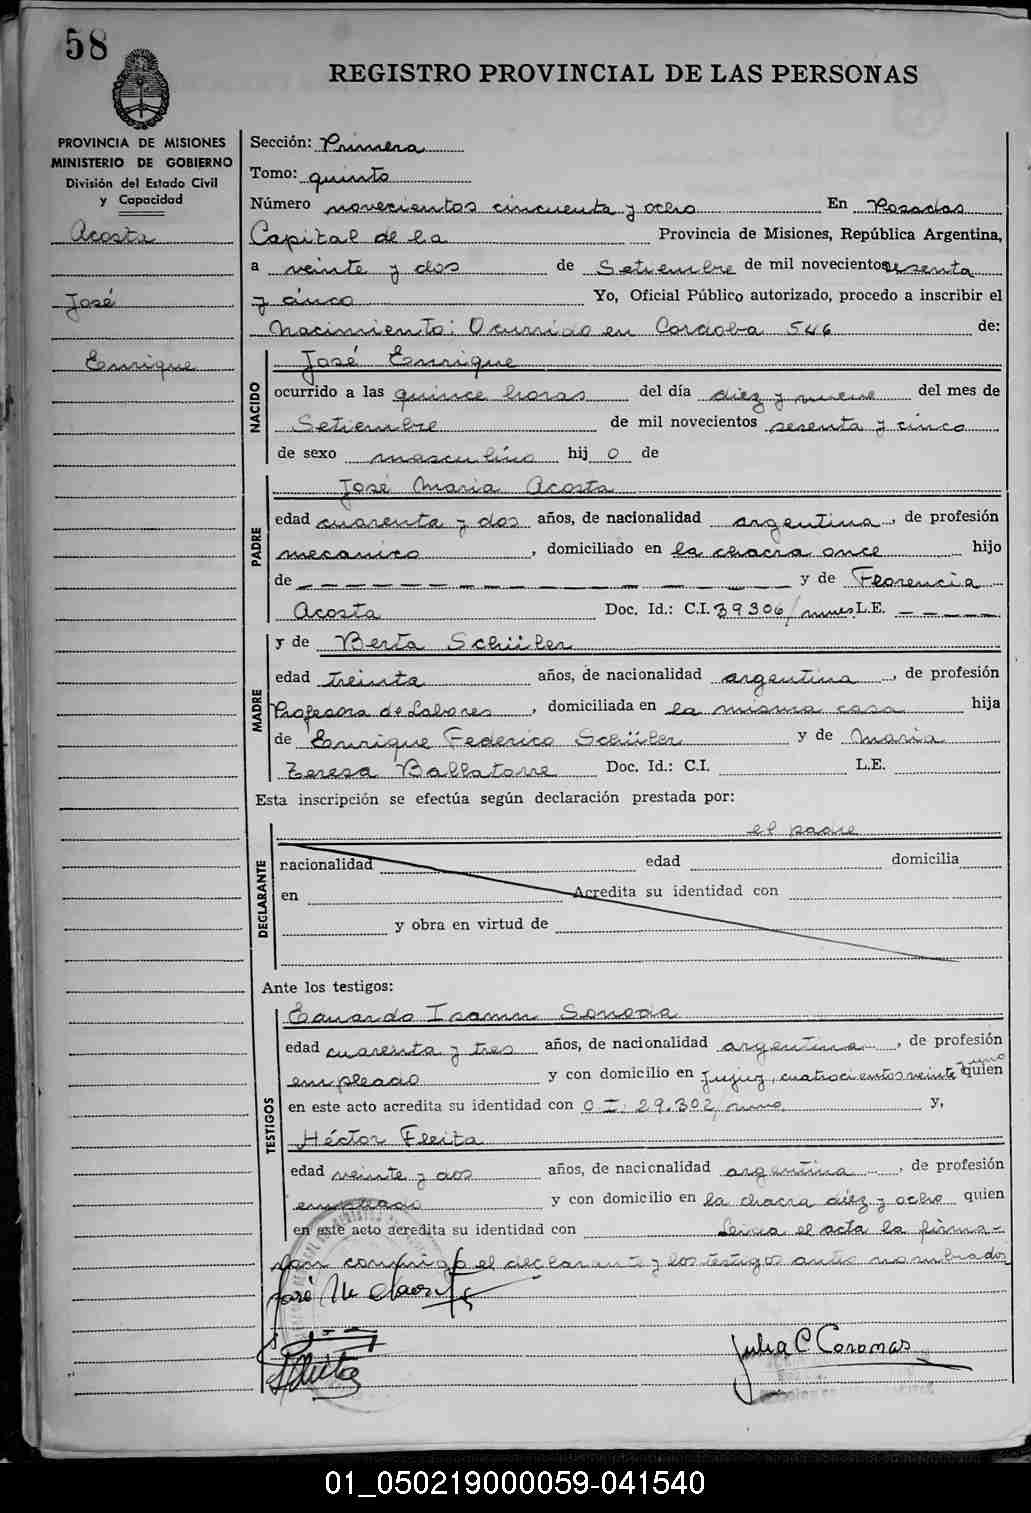 58
REGISTRO PROVINCIAL DE LAS PERSONAS
PROVINCIA DE MISIONES
MINISTERIO DE GOBIERNO
División del Estado Civil
y Capacidad
Acosta
José
Enrique
Sección: Primera
Tomo: quinto
Número novecientos cincuenta y ocho En Posadas
Capital de la Provincia de Misiones, República Argentina,
a veinte y dos de Setiembre de mil novecientos sesenta
y cinco Yo, Oficial Público autorizado, procedo a inscribir el
Nacimiento: Ocurrido en Cordoba 546 de:
NACIDO
José Enrique
ocurrido a las quince horas del día diez y nueve del mes de
Setiembre de mil novecientos sesenta y cinco
de sexo masculino hij o de
PADRE
José Maria Acosta
edad cuarenta y dos años, de nacionalidad argentina, de profesión
mecanico, domiciliado en la chacra once hijo
de — — — — — — — — — — — — y de Florencia
Acosta Doc. Id.: C.I. 39306/mnes L.E. — — — — —
MADRE
y de Berta Schüler
edad treinta años, de nacionalidad argentina, de profesión
Profesora de Labores, domiciliada en la misma casa hija
de Enrique Federico Schüler y de Maria
Teresa Ballatorre Doc. Id.: C.I. L.E.
Esta inscripción se efectúa según declaración prestada por:
DECLARANTE
el padre
nacionalidad edad domicilia
en Acredita su identidad con
y obra en virtud de
Ante los testigos:
TESTIGOS
Eduardo Isamu Sonoda
edad cuarenta y tres años, de nacionalidad argentina, de profesión
empleado y con domicilio en Jujuy, cuatrocientos veinte y uno quien
en este acto acredita su identidad con C I. 29.302/ y,
Héctor Fleita
edad veinte y dos años, de nacionalidad argentina, de profesión
empleado y con domicilio en la chacra diez y ocho quien
en este acto acredita su identidad con Leida el acta la firma-
ron conmigo el declarante y los testigos antes nombrados
José M Acosta
Julia C Coromas
01_050219000059-041540